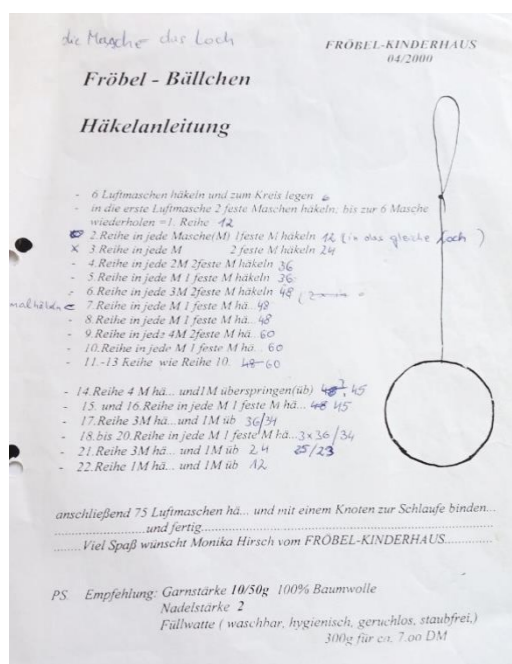 die Masche das Loch
FRÖBEL-KINDERHAUS
04/2000
Fröbel - Bällchen
Häkelanleitung
- 6 Luftmaschen häkeln und zum Kreis legen 6
- in die erste Luftmasche 2 feste Maschen häkeln, bis zur 6 Masche
wiederholen =1. Reihe 12
2.Reihe in jede Masche(M) 1feste M häkeln 12 (in das gleiche Loch )
x 3.Reihe in jede M 2 feste M häkeln 24
- 4.Reihe in jede 2M 2feste M häkeln 36
- 5.Reihe in jede M 1 feste M häkeln 36
- 6.Reihe in jede 3M 2feste M häkeln 48
- 7.Reihe in jede M 1 feste M hä.. 48
- 8.Reihe in jede M 1 feste M hä.. 48
- 9.Reihe in jede 4M 2feste M hä.. 60
- 10.Reihe in jede M 1 feste M hä... 60
- 11.-13 Reihe wie Reihe 10. 48-60
- 14.Reihe 4 M hä... und1M überspringen(üb) 48? 45
- 15. und 16.Reihe in jede M 1 feste M hä... 48 45
- 17.Reihe 3M hä...und 1M üb 36/34
- 18.bis 20.Reihe in jede M 1 feste M hä...3x36/34
- 21.Reihe 3M hä... und 1M üb 24 25/23
- 22.Reihe 1M hä... und 1M üb 12
anschließend 75 Luftmaschen hä... und mit einem Knoten zur Schlaufe binden...
........................und fertig...............................................................
........Viel Spaß wünscht Monika Hirsch vom FRÖBEL-KINDERHAUS............
PS. Empfehlung: Garnstärke 10/50g 100% Baumwolle
Nadelstärke 2
Füllwatte ( waschbar, hygienisch, geruchlos, staubfrei,)
300g für ca. 7.oo DM